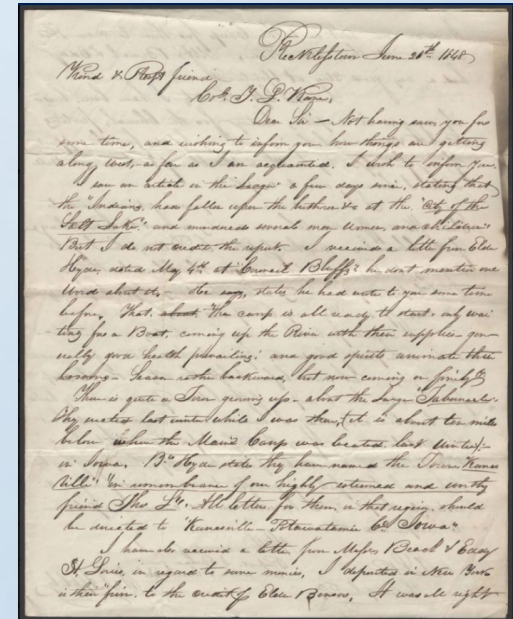 Recklesstown June 20th 1848
Kind & Respt friend
Col. T. L. Kane,
Dear Sir — Not having seen you for
some time, and wishing to inform you how things are getting
along, west, as far as I am acquainted. I wish to inform you.
I saw an article in the Ledger a few days since, stating that
the "Indians, have fallen upon the brethren &c at the "City of the
Salt Lake," and murdered several men women, and children."
But I do not credit the report. I received a letter from Elder
Hyde, dated May 4th at "Council Bluffs" he dont mention one
word about it, — He says, states he had wrote to you some time
before, That, about the camp is all ready to start — only wai
ting for a Boat, coming up the River with their supplies — gen
erally good health prevailing: and good spirits animate their
bosoms — Season rather backward, but now coming on finely
There is quite a Town growing up — about the Large Tabernacle
they erected last winter while I was there, (it is about ten miles
below where the Main Camp was located, last winter) —
in Iowa. Br. Hyde states they have named the Town "Kanes
ville" "in remembrance of our highly esteemed and worthy
friend Thos L. All letters for them, in that region, should
be directed to "Kanesville — Potawatamie Co Iowa"
I have also received a letter from Messrs Beach & Eddy
St. Louis, in regard to some monies, I deposited in New York
in their firm, to the credit of Elder Benson, It was all right